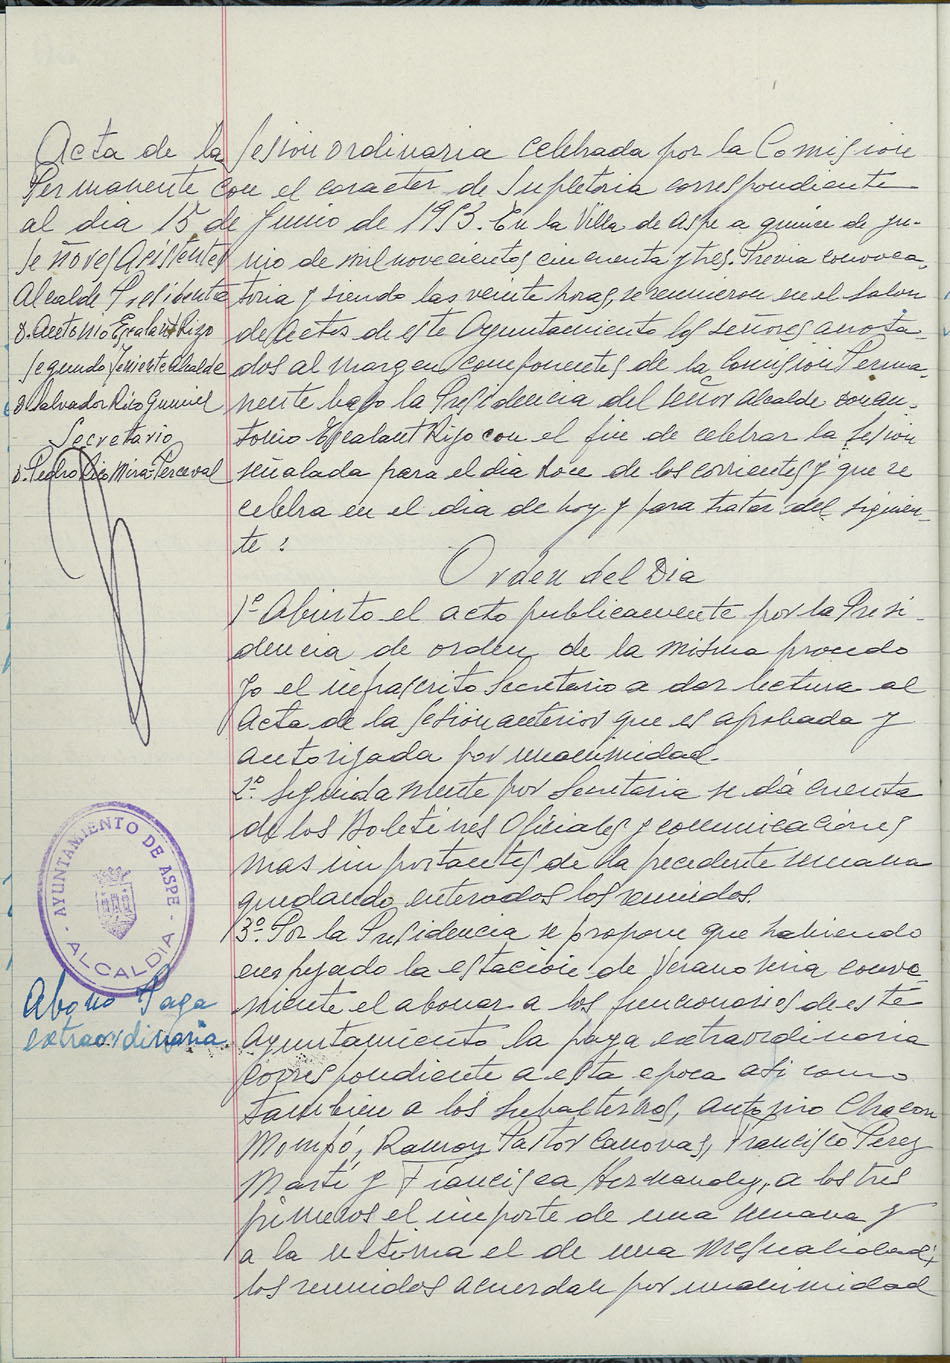 Acta de la Sesion ordinaria celebrada por la Comision
Permanente con el caracter de Supletoria correspondiente
al dia 15 de Junio de 1953. En la Villa de Aspe a quince de Ju-
Señores Asistentes
Alcalde Presidente
D. Antonio Escalant Rizo
Segundo Teniente Alcalde
D. Salvador Rico
Secretario
D. Pedro Rico Mira-Perceval
nio de mil novecientos cincuenta y tres. Previa convoca-
toria y siendo las veinte horas, se reunieron en el Salon
de Actos de este Ayuntamiento los señores anota-
dos al margen, componentes de la Comision Perma-
nente bajo la Presidencia del señor Alcalde don An-
tonio Escalant Rizo con el fin de celebrar la sesion
señalada para el dia doce de los corrientes y que se
celebra en el dia de hoy, y para tratar del siguien-
te :
Orden del Dia
1º Abierto el acto publicamente por la Presi-
dencia de orden de la misma procedo
Yo el infrascrito Secretario a dar lectura al
Acta de la Sesion anterior que es aprobada y
autorizada por unanimidad.
2º. Seguidamente por Secretaria se dá cuenta
de los Boletines Oficiales y comunicaciones
mas importantes de la precedente semana
quedando enterados los reunidos.
AYUNTAMIENTO DE ASPE
- ALCALDIA -
Abono Paga
extraordinaria.
3º. Por la Presidencia se propone que habiendo
empezado la estacion de Verano seria conve-
niente el abonar a los funcionarios de este
Ayuntamiento la paga extraordinaria
correspondiente a esta epoca asi como
tambien a los subalternos, Antonio Chacon
Mompó, Ramon Pastor Canovas, Francisco Perez
Marti y Francisca Hernandez, a los tres
primeros el importe de una semana y
a la ultima el de una mensualidad;
los reunidos acuerdan por unanimidad